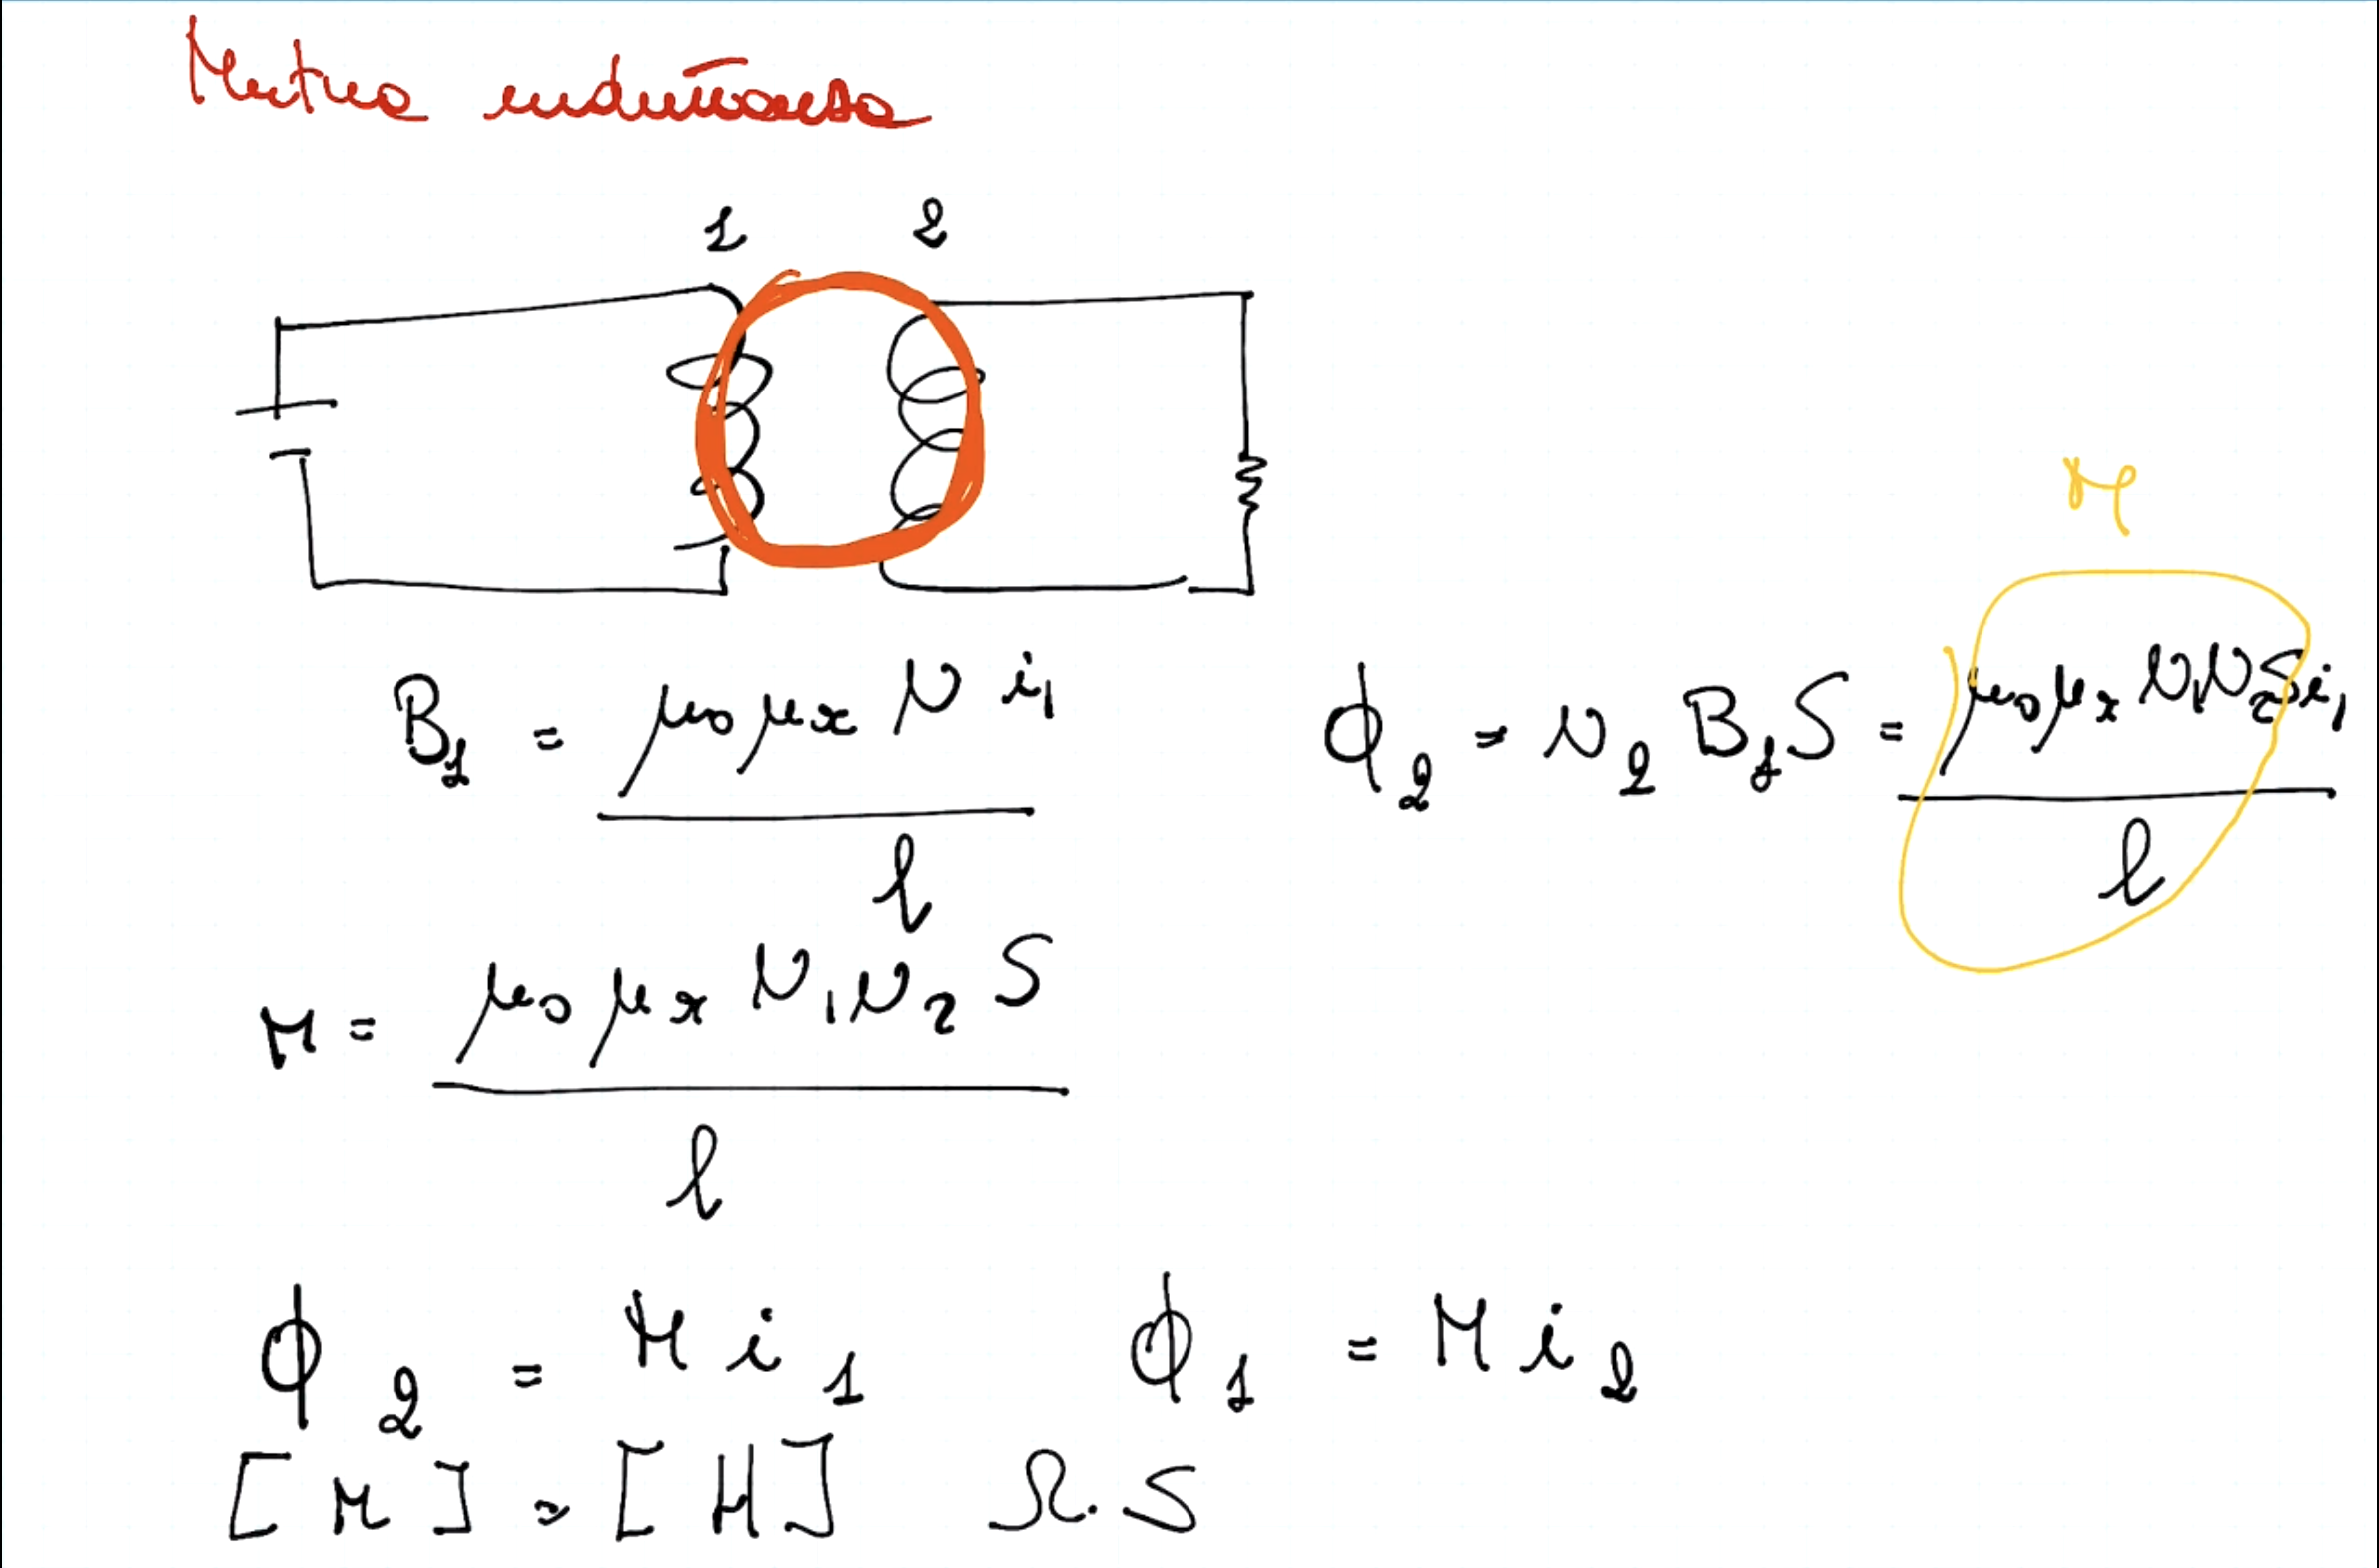 Mutua induttanza
1 2
B₁ = μ₀μᵣ N i₁ / l
M
ϕ₂ = N₂ B₁ S = μ₀μᵣ N₁N₂ S i₁ / l
M = μ₀ μᵣ N₁N₂ S / l
ϕ₂ = M i₁ ϕ₁ = M i₂
[M] = [H] Ω.s